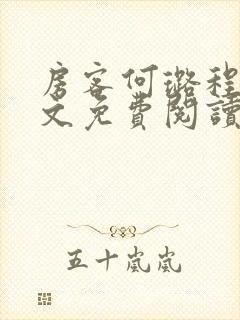 房客何璐程
文免費閱讀
五十嵐嵐